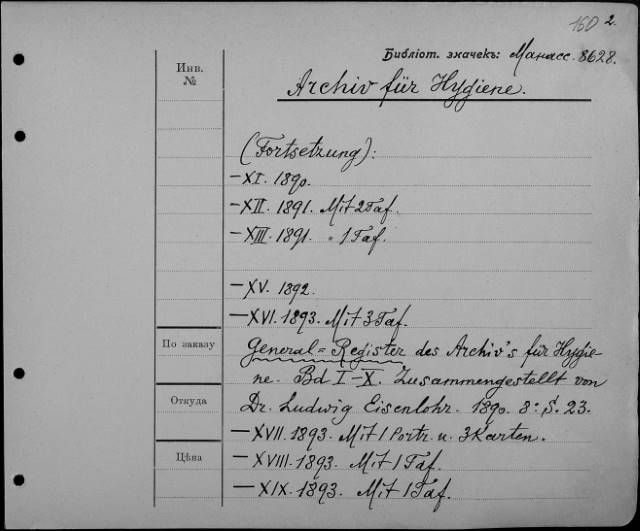 160 2.
Библіот. значекъ: Манасс. 8628.
Инв.
№
Archiv für Hygiene.
(Fortsetzung):
— XI. 1890.
— XII. 1891. Mit 2 Taf.
— XIII. 1891. " 1 Taf.
— XV. 1892.
— XVI. 1893. Mit 3 Taf.
По заказу
General-Register des Archiv's für Hygie-
ne. Bd I–X. Zusammengestellt von
Откуда
Dr. Ludwig Eisenlohr. 1890. 8º S. 23.
— XVII. 1893. Mit 1 Portr. u. 3 Karten.
Цѣна
— XVIII. 1893. Mit 1 Taf.
— XIX. 1893. Mit 1 Taf.